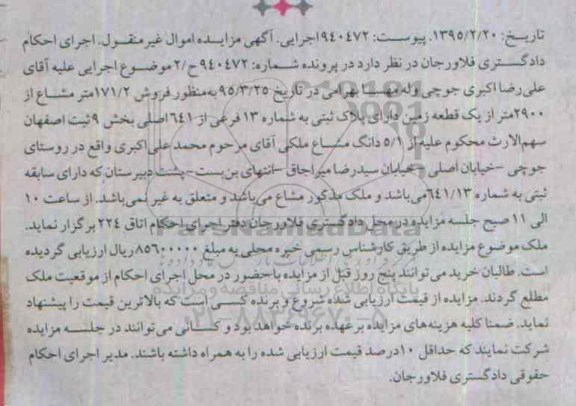 تاریخ: ۱۳۹۵/۲/۲۰. پیوست: ۹۴۰۴۷۲اجرایی. آگهی مزایده اموال غیرمنقول. اجرای احکام
دادگستری فلاورجان در نظر دارد در پرونده شماره: ۹۴۰۴۷۲ح/۲ موضوع اجرایی علیه آقای
علی‌رضا اکبری جوچی وله مهسا بهرامی در تاریخ ۹۵/۳/۲۵ به‌منظور فروش ۱۷۱/۲متر مشاع از
۲۹۰۰متر از یک قطعه زمین دارای پلاک ثبتی به شماره ۱۳ فرعی از ۶۴۱اصلی بخش ۹ ثبت اصفهان
سهم‌الارث محکوم علیه از ۵/۱ دانگ مشاع ملکی آقای مرحوم محمد علی‌اکبری واقع در روستای
جوچی -خیابان اصلی -خیابان سیدرضا میراجاق -انتهای بن‌بست-پشت دبیرستان که دارای سابقه
ثبتی به شماره ۶۴۱/۱۳می‌باشد و ملک مذکور مشاع می‌باشد و متعلق به غیر نمی‌باشد. از ساعت ۱۰
الی ۱۱ صبح جلسه مزایده در محل دادگستری فلاورجان دفتر اجرای احکام اتاق ۲۲۴ برگزار نماید.
ملک موضوع مزایده از طریق کارشناس رسمی خبره محلی به مبلغ ۸۵۶۰۰۰۰۰ریال ارزیابی گردیده
است. طالبان خرید می‌توانند پنج روز قبل از مزایده باحضور در محل اجرای احکام از موقعیت ملک
مطلع گردند. مزایده از قیمت ارزیابی شده شروع و برنده کسی است که بالاترین قیمت را پیشنهاد
نماید. ضمنا کلیه هزینه‌های مزایده برعهده برنده خواهد بود و کسانی می‌توانند در جلسه مزایده
شرکت نمایند که حداقل ۱۰درصد قیمت ارزیابی شده را به همراه داشته باشند. مدیر اجرای احکام
حقوقی دادگستری فلاورجان.